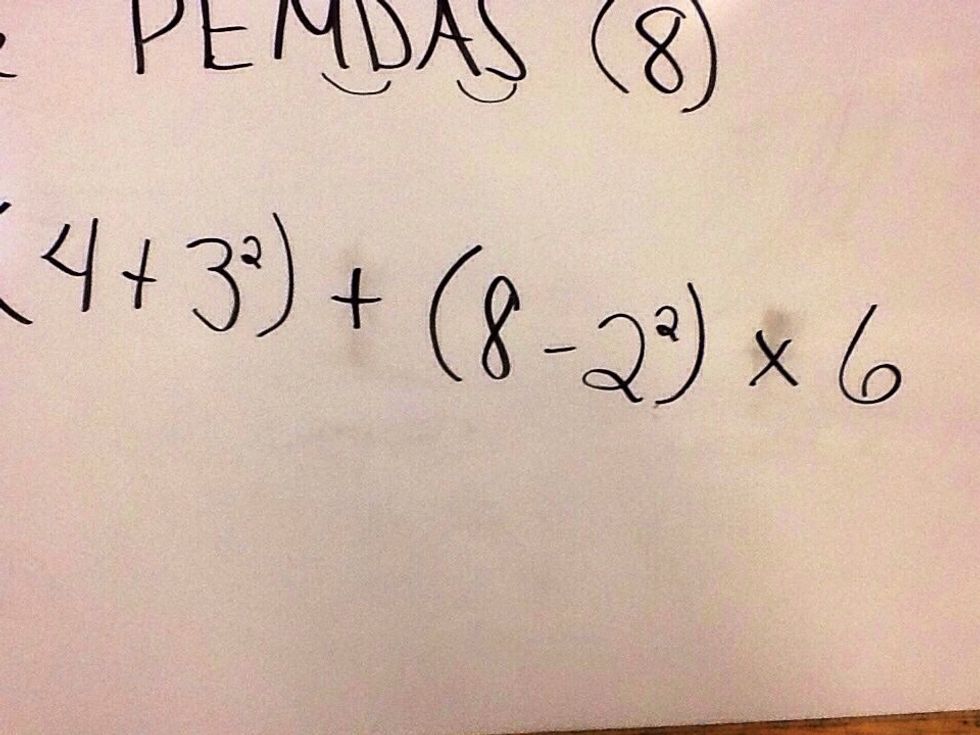 PEMDAS (8)
(4+3²) + (8-2²) x 6